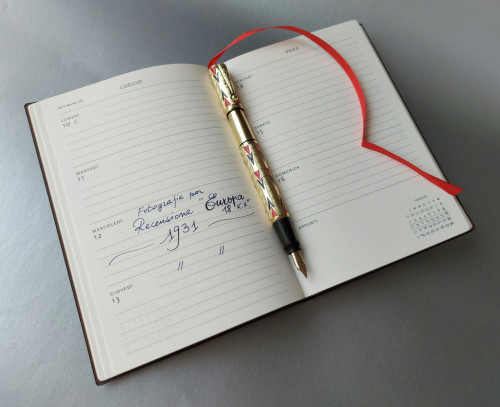 LUGLIO
SETTIMANA 28
LUNEDÌ
10
MARTEDÌ
11
MERCOLEDÌ
12
Fotografie per
Recensione "Europa
18 Kt"
1931
" "
GIOVEDÌ
13
2023
14
SABATO
15
DOMENICA
16
APPUNTI